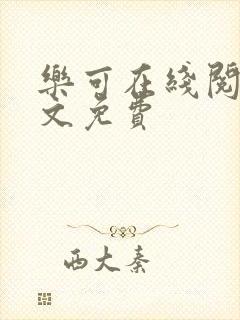 樂可在綫閱
文免費
西大秦